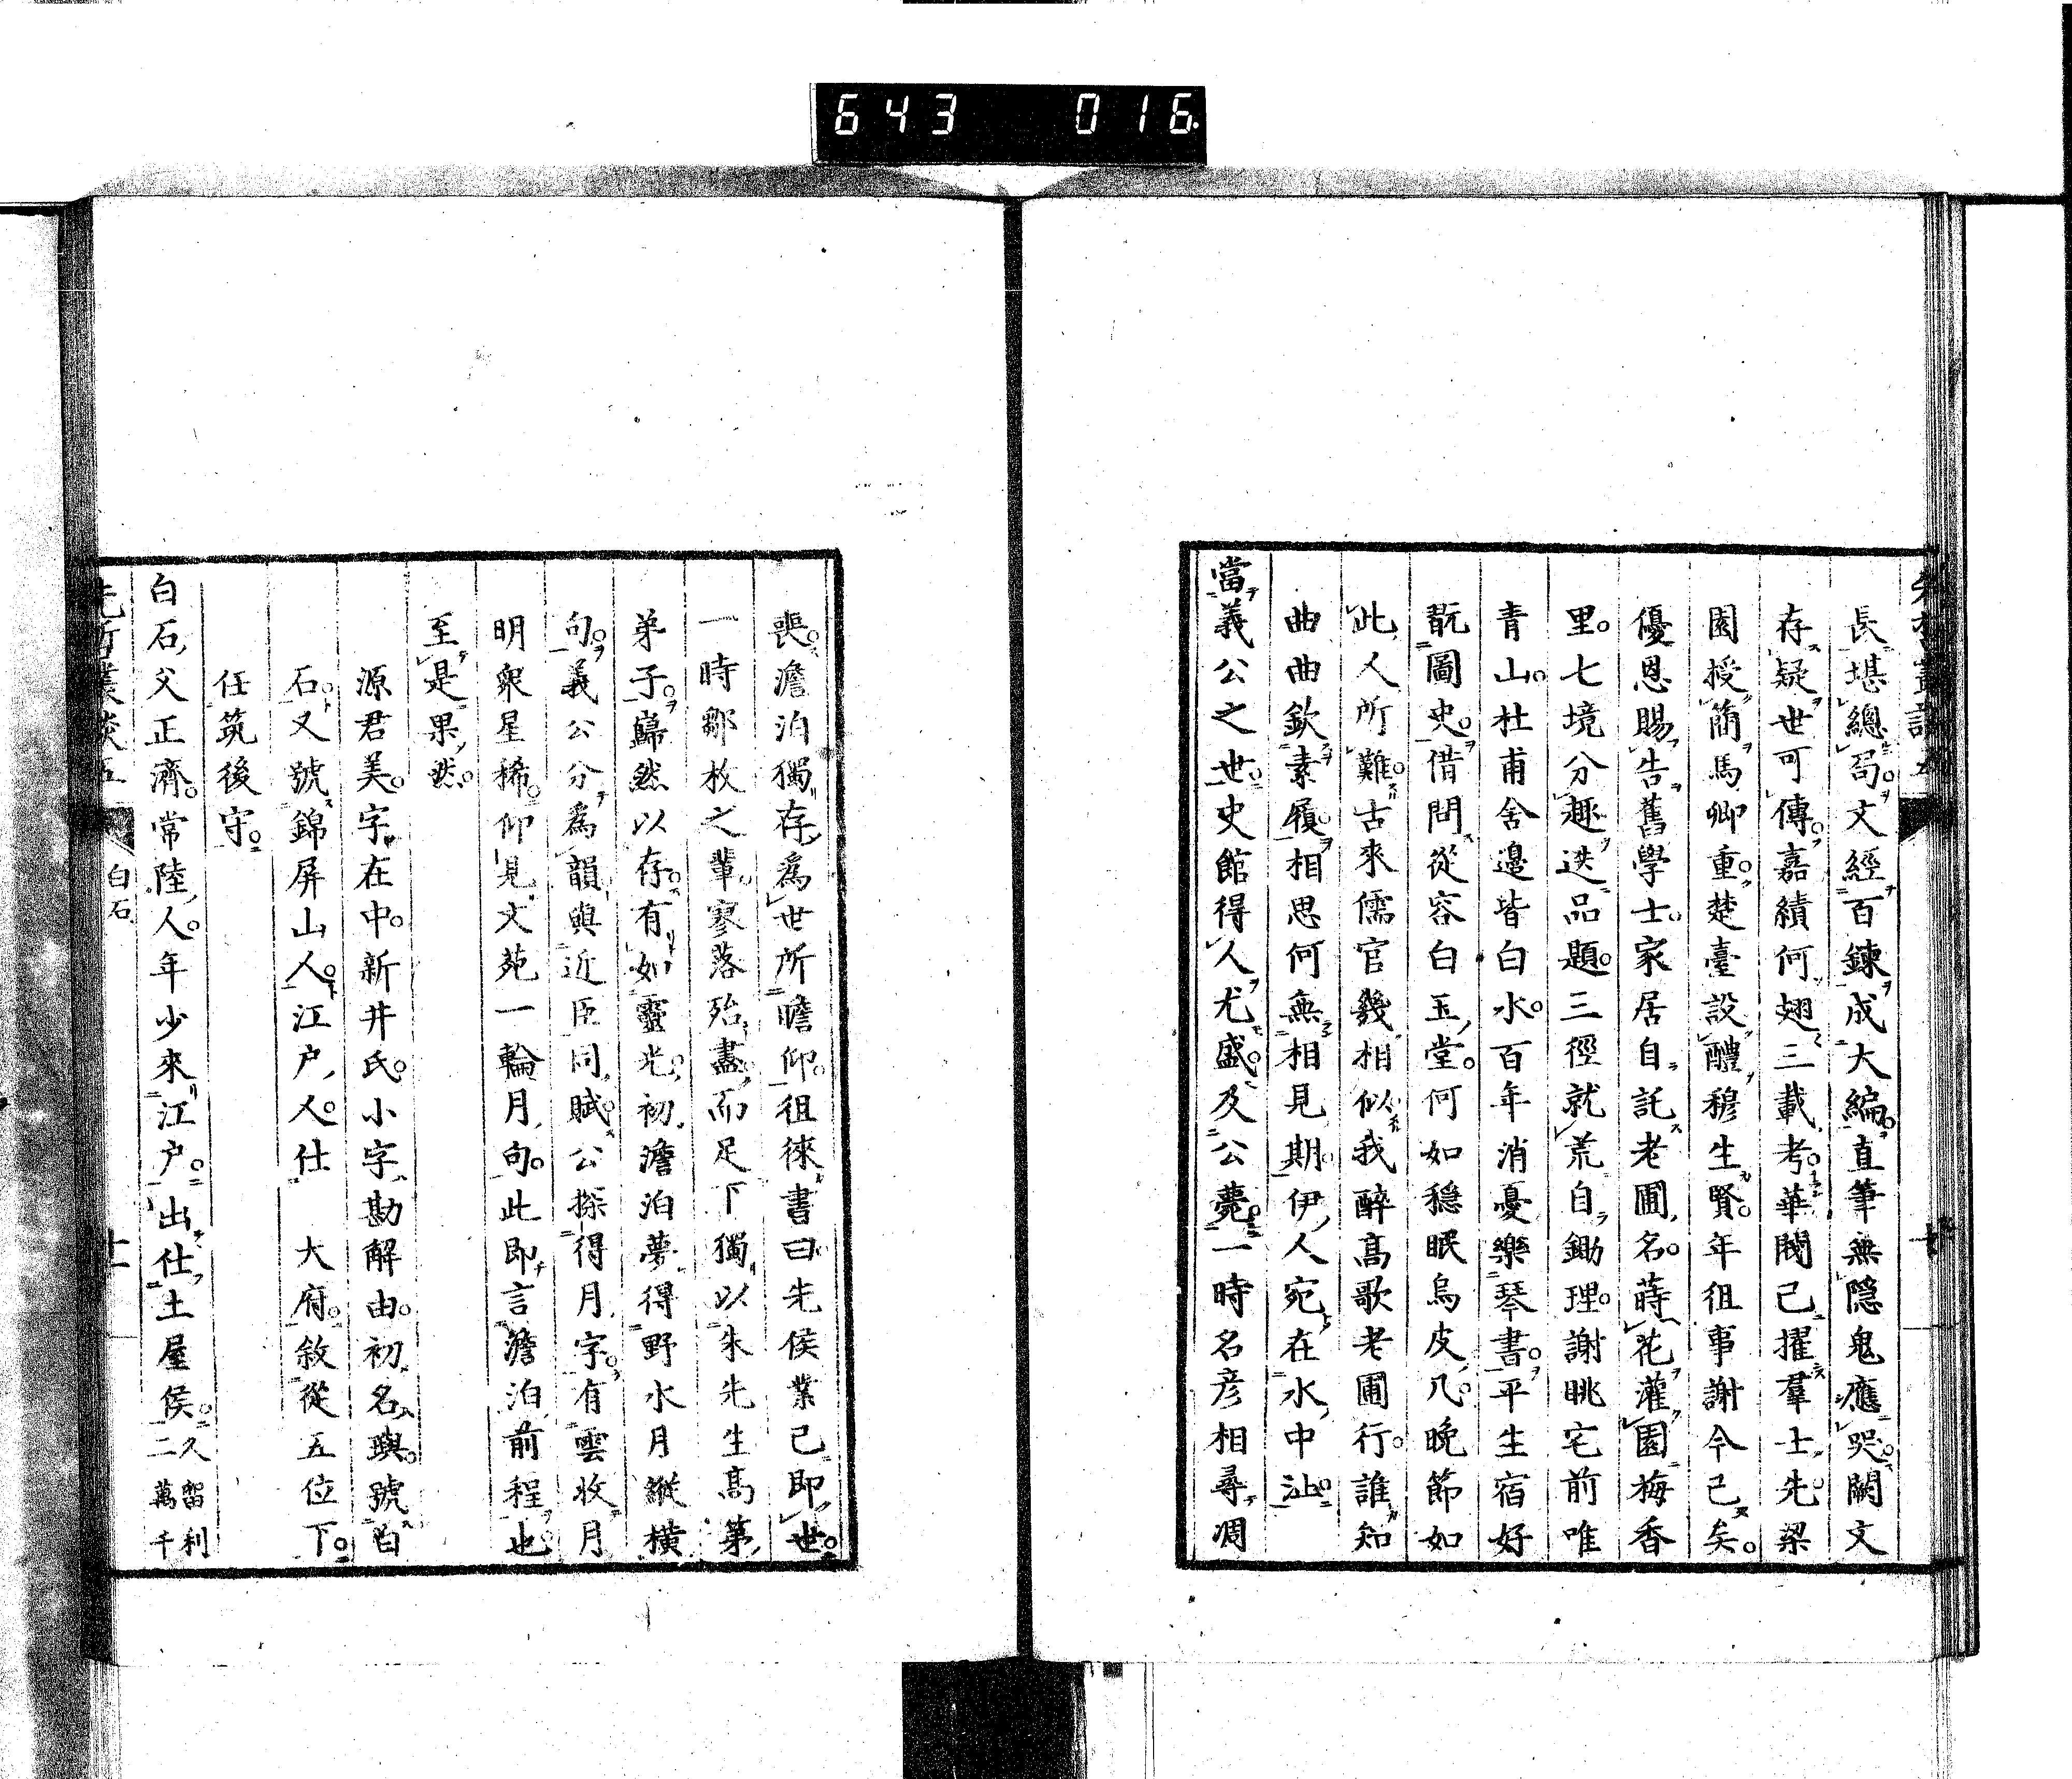 643 016
長堪總局文經百鍊成大編直筆無隱鬼應哭闕文
存疑世可傳嘉績何翅三載考華閥已擢羣士先梁
園授簡馬卿重楚臺設醴穆生賢年徂事謝今已矣
優恩賜告舊學士家居自託老圃名蒔花灌園梅香
里七境分趣迭品題三徑就荒自鋤理謝眺宅前唯
青山杜甫舍邊皆白水百年消憂樂琴書平生宿好
翫圖史借問從容白玉堂何如穩眠烏皮几晚節如
此人所難古來儒官幾相似我醉高歌老圃行誰知
曲曲欽素履相思何無相見期伊人宛在水中沚
當義公之世史館得人尤盛及公薨一時名彦相尋凋
喪澹泊獨存爲世所瞻仰徂徠書曰先侯業已即世
一時鄒枚之輩寥落殆盡而足下獨以朱先生高第
弟子巋然以存有如靈光初澹泊夢得野水月縱橫
句義公分爲韻與近臣同賦公探得月字有雲收月
明衆星稀仰見文苑一輪月句此即言澹泊前程也
至是果然
源君美字在中新井氏小字勘解由初名璵號白
石又號錦屏山人江戶人仕 大府敘從五位下
任筑後守
白石父正濟常陸人年少來江戶出仕土屋侯久留利二萬千
先哲叢談五 白石 十一